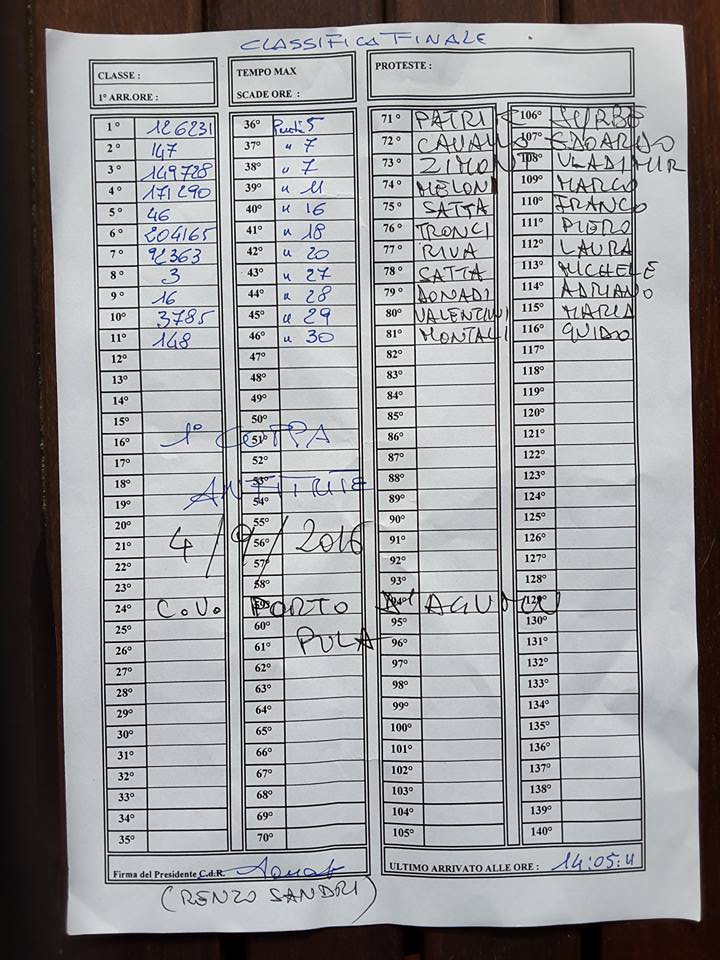 CLASSIFICA FINALE
CLASSE :
1° ARR.ORE :
TEMPO MAX
SCADE ORE :
PROTESTE :
1° 126231 36° Punti 5 71° PATRI 106° SURBO
2° 147 37° " 7 72° CAVALLO 107° EDOARDO
3° 149728 38° " 7 73° ZIMON 108° VLADIMIR
4° 171290 39° " 11 74° MELONI 109° MARCO
5° 46 40° " 16 75° SATTA 110° FRANCO
6° 204165 41° " 18 76° TRONCI 111° PIERO
7° 92363 42° " 20 77° RIVA 112° LAURA
8° 3 43° " 27 78° SATTA 113° MICHELE
9° 16 44° " 28 79° DONADI 114° ADRIANO
10° 3785 45° " 29 80° VALENTINI 115° MARIA
11° 148 46° " 30 81° MONTALI 116° GUIDO
12° 47° 82° 117°
13° 48° 83° 118°
14° 49° 84° 119°
15° 50° 85° 120°
16° 51° 86° 121°
1° COPPA
17° 52° 87° 122°
18° 53° 88° 123°
ANFITRITE
19° 54° 89° 124°
20° 55° 90° 125°
21° 56° 91° 126°
4/9/2016
22° 57° 92° 127°
23° 58° 93° 128°
24° 59° 94° 129°
C.V. PORTO D'AGUMU
25° 60° 95° 130°
26° 61° 96° 131°
PULA
27° 62° 97° 132°
28° 63° 98° 133°
29° 64° 99° 134°
30° 65° 100° 135°
31° 66° 101° 136°
32° 67° 102° 137°
33° 68° 103° 138°
34° 69° 104° 139°
35° 70° 105° 140°
Firma del Presidente C.d.R.
ULTIMO ARRIVATO ALLE ORE : 14:05:11
(RENZO SANDRI)